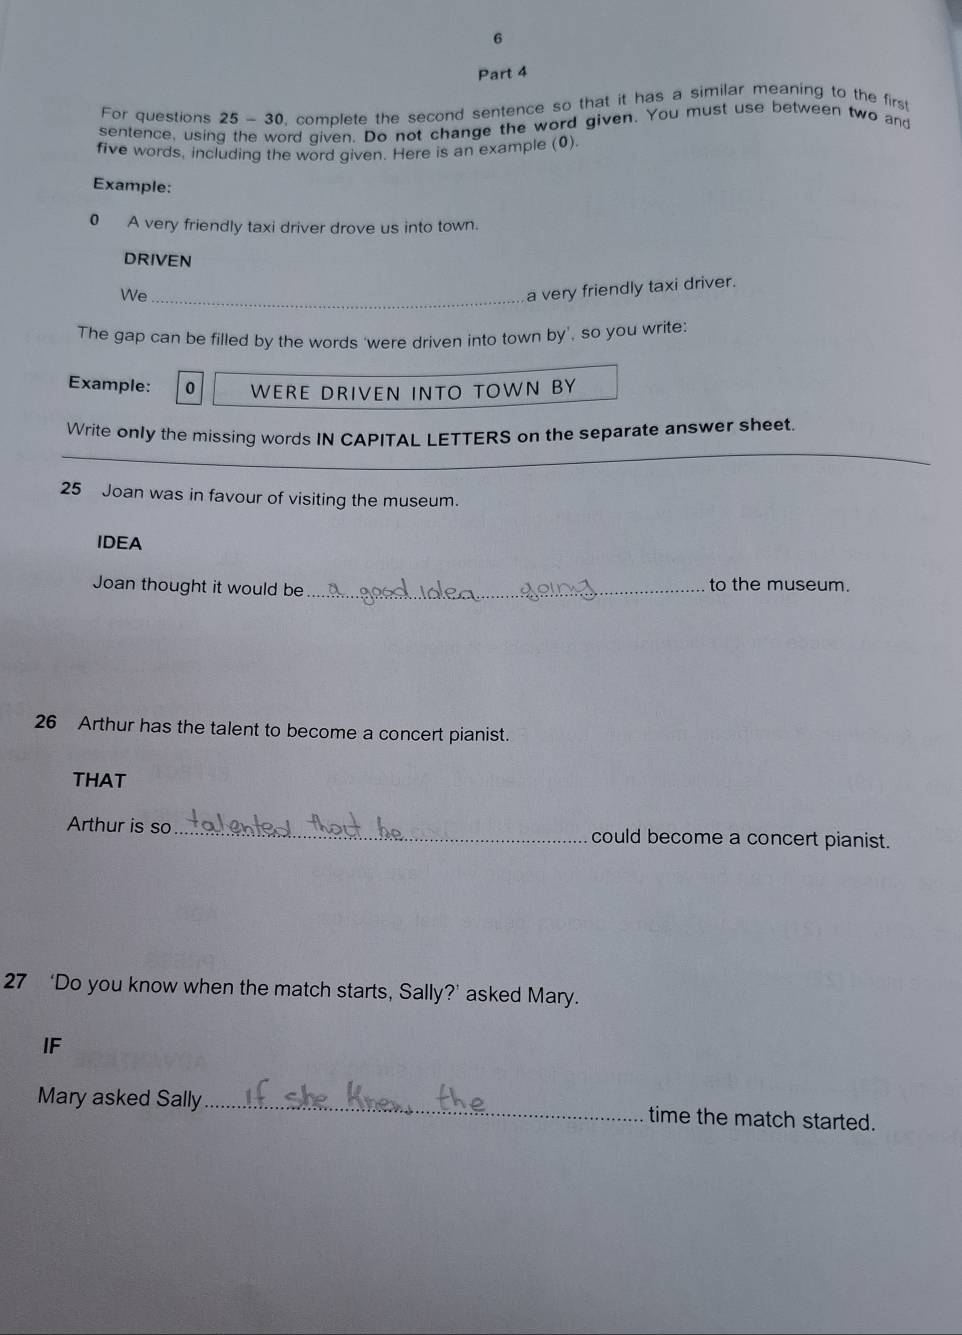 6
Part 4
For questions 25 – 30, complete the second sentence so that it has a similar meaning to the first
sentence, using the word given. Do not change the word given. You must use between two and
five words, including the word given. Here is an example (0).
Example:
0 A very friendly taxi driver drove us into town.
DRIVEN
We ........ a very friendly taxi driver.
The gap can be filled by the words 'were driven into town by', so you write:
Example: 0 WERE DRIVEN INTO TOWN BY
Write only the missing words IN CAPITAL LETTERS on the separate answer sheet.
25 Joan was in favour of visiting the museum.
IDEA
Joan thought it would be a good idea going to the museum.
26 Arthur has the talent to become a concert pianist.
THAT
Arthur is so talented that he could become a concert pianist.
27 'Do you know when the match starts, Sally?' asked Mary.
IF
Mary asked Sally if she knew the time the match started.